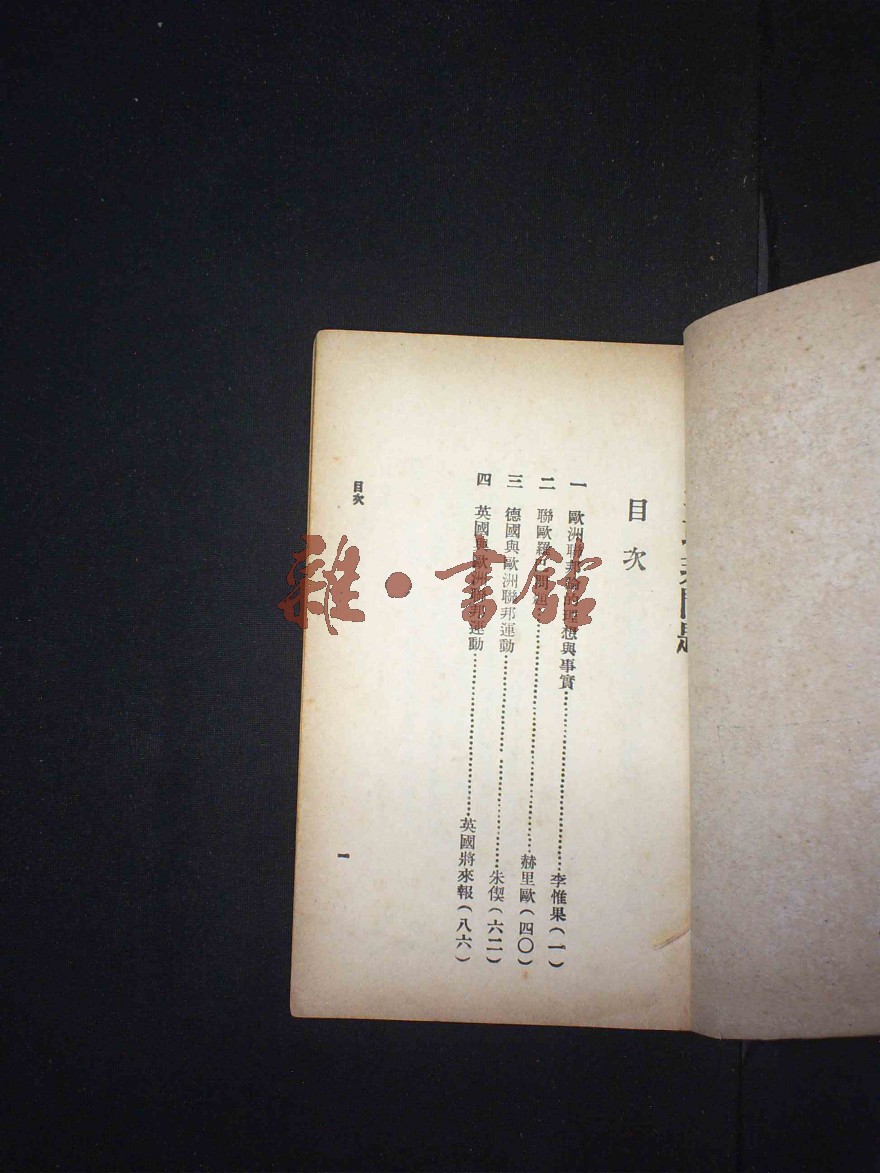 目次
一　歐洲聯邦論的理想與事實……李惟果(一)
二　聯歐羅巴問題……赫里歐(四〇)
三　德國與歐洲聯邦運動……朱偰(六二)
四　英國與歐洲聯邦運動……英國將來報(八六)
目次
一
雜·書館